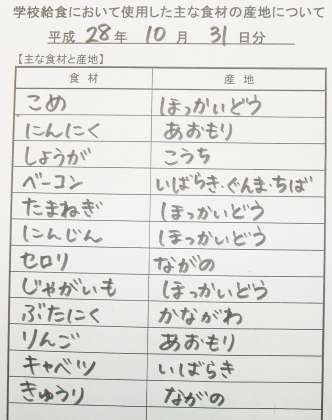 学校給食において使用した主な食材の産地について
平成 28 年 10 月 31 日分
【主な食材と産地】
食材 産地
こめ ほっかいどう
にんにく あおもり
しょうが こうち
ベーコン いばらき・ぐんま・ちば
たまねぎ ほっかいどう
にんじん ほっかいどう
セロリ ながの
じゃがいも ほっかいどう
ぶたにく かながわ
りんご あおもり
キャベツ いばらき
きゅうり ながの